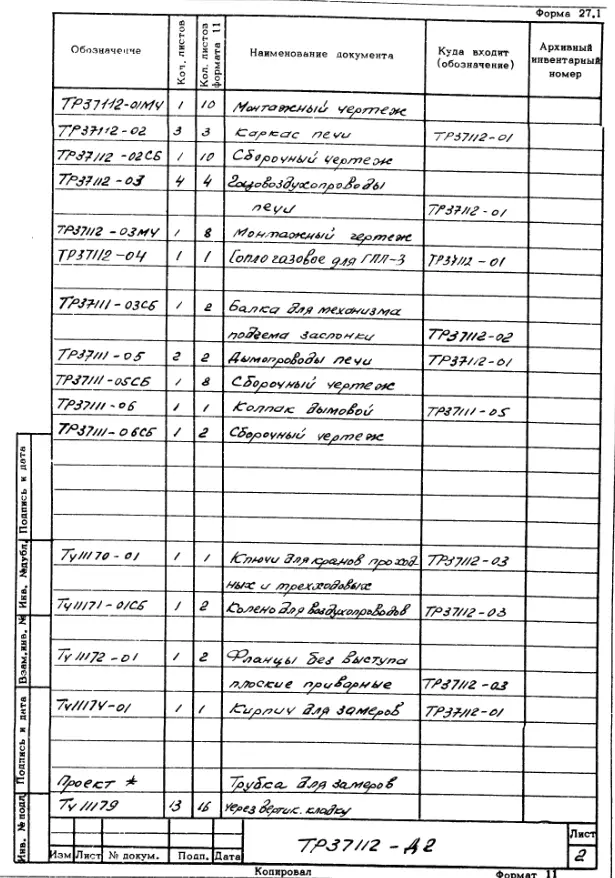 Форма 27.1
Обозначение Кол. листов Кол. листов формата 11 Наименование документа Куда входит (обозначение) Архивный инвентарный номер
ТР37112-01МЧ 1 10 Монтажный чертеж
ТР37112-02 3 3 Каркас печи ТР37112-01
ТР37112-02СБ 1 10 Сборочный чертеж
ТР37112-03 4 4 Газовоздухопроводы
печи ТР37112-01
ТР37112-03МЧ 1 8 Монтажный чертеж
ТР37112-04 1 1 Сопло газовое для ГПП-3 ТР37112-01
ТР37111-03СБ 1 2 Балка для механизма
подъема заслонки ТР37112-02
ТР37111-05 2 2 Дымопроводы печи ТР37112-01
ТР37111-05СБ 1 8 Сборочный чертеж
ТР37111-06 1 1 Колпак дымовой ТР37111-05
ТР37111-06СБ 1 2 Сборочный чертеж
Ту11170-01 1 1 Ключи для кранов проход-
ных и трехходовых ТР37112-03
Ту11171-01СБ 1 2 Колено для воздухопроводов ТР37112-03
Ту11172-01 1 2 Фланцы без выступа
плоские приварные ТР37112-03
Ту11174-01 1 1 Кирпич для замеров ТР37112-01
Проект * Трубка для замеров
Ту11179 13 16 через вертик. кладку
Инв. № подл. Подпись и дата Взам. инв. № Инв. № дубл. Подпись и дата
Изм Лист № докум. Подп. Дата
ТР37112-Д2
Лист
2
Копировал Формат 11